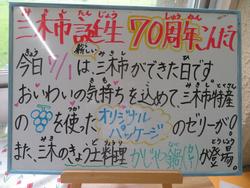 三木市誕生70周年こんだて
今日7/1は、三木市ができた日です。
おいわいの気持ちを込めて、三木市特産
の を使ったオリジナルパッケージのゼリーが!
また、三木のきょう土料理 かじや鍋(なべ)が登場。